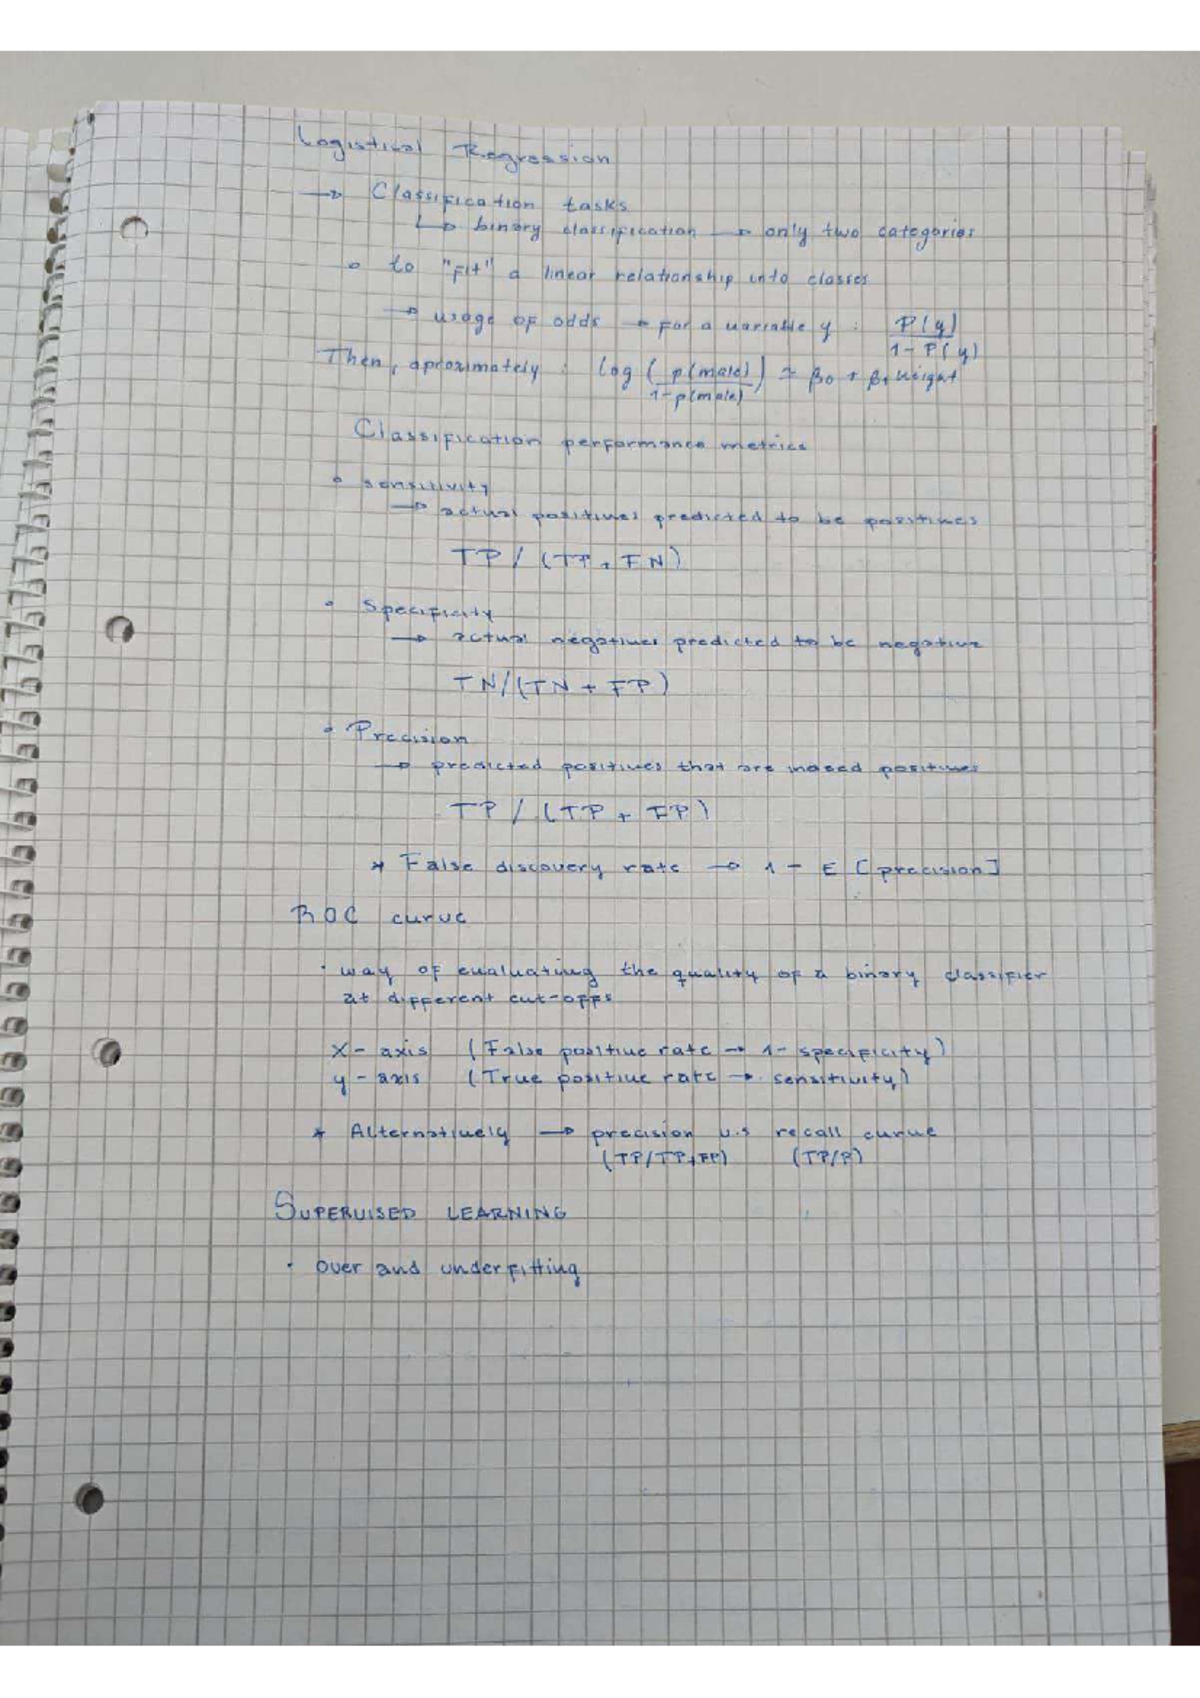 Logistical Regression
→ Classification tasks
↳ binary classification → only two categories
• to "fit" a linear relationship into classes
→ usage of odds → for a variable y : P(y) / 1 - P(y)
Then, aproximately : log ( p(male) / 1-p(male) ) = β0 + β1 Height
Classification performance metrics
• sensitivity
→ actual positives predicted to be positives
TP / (TP + FN)
• Specificity
→ actual negatives predicted to be negative
TN/(TN + FP)
• Precision
→ predicted positives that are indeed positives
TP / (TP + FP)
* False discovery rate → 1 - E [precision]
ROC curve
• way of evaluating the quality of a binary classifier
at different cut-offs
X - axis (False positive rate → 1- specificity)
y - axis (True positive rate → sensitivity)
* Alternatively → precision v.s recall curve
(TP/TP+FP) (TP/P)
SUPERVISED LEARNING
• over and underfitting